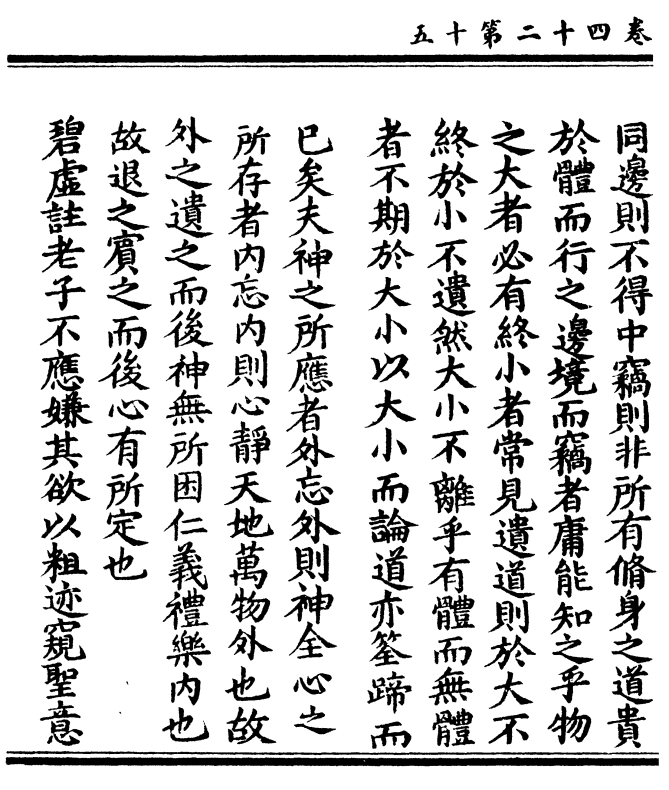 卷四十二第十五
同邊則不得中竊則非所有脩身之道貴
於體而行之邊境而竊者庸能知之乎物
之大者必有終小者常見遺道則於大不
終於小不遺然大小不離乎有體而無體
者不期於大小以大小而論道亦筌蹄而
已矣夫神之所應者外忘外則神全心之
所存者内忘内則心靜天地萬物外也故
外之遺之而後神無所困仁義禮樂内也
故退之賓之而後心有所定也
碧虛註老子不應嫌其欲以粗迹窺聖意